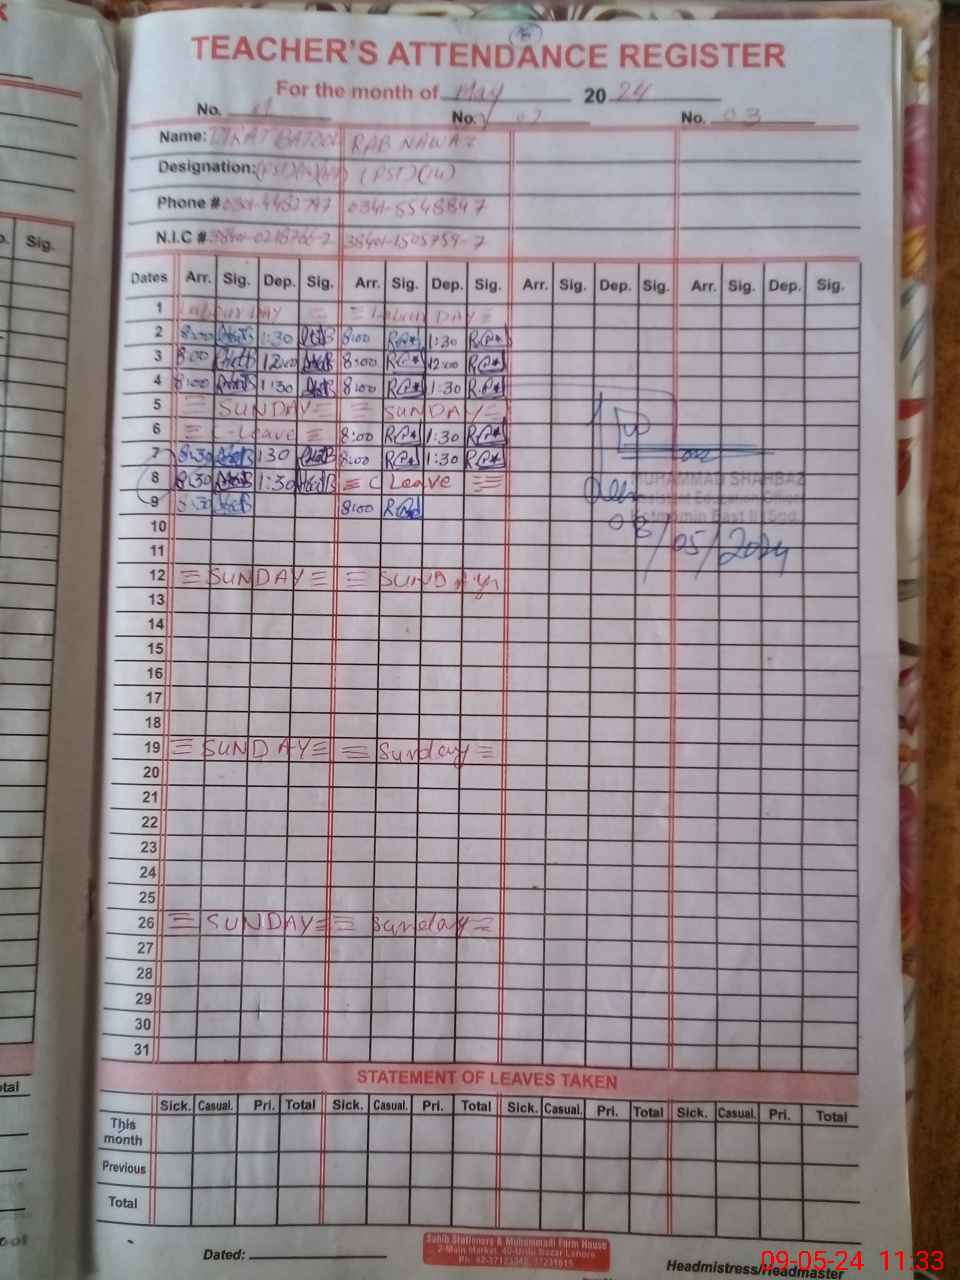 TEACHER'S ATTENDANCE REGISTER
For the month of May 2024
No. 01 No. 02 No. 03
Name: BATOOL RAB NAWAZ
Designation: (PST)
Phone # 0341-8548847
N.I.C # 38401-1505759-7
Dates Arr. Sig. Dep. Sig. Arr. Sig. Dep. Sig. Arr. Sig. Dep. Sig. Arr. Sig. Dep. Sig.
1 Labour DAY Labour DAY
2 8:00 1:30 8:00 1:30
3 8:00 12:00 8:00 12:00
4 8:00 1:30 8:00 1:30
5 SUNDAY SUNDAY
6 C-Leave 8:00 1:30
7 8:30 130 8:00 1:30
8 8:30 1:30 C Leave
9 8:30 8:00
MUHAMMAD SHAHBAZ
Assistant Education Officer
Kotmomin East II (Sgd)
08/05/2024
10
11
12 SUNDAY SUNDAY
13
14
15
16
17
18
19 SUNDAY Sunday
20
21
22
23
24
25
26 SUNDAY Sunday
27
28
29
30
31
STATEMENT OF LEAVES TAKEN
Sick. Casual. Pri. Total Sick. Casual. Pri. Total Sick. Casual. Pri. Total Sick. Casual. Pri. Total
This month
Previous
Total
Dated:
Sahib Stationers & Muhammadi Farm House
2-Main Market, 40-Urdu Bazar Lahore
Headmistress/Headmaster
09-05-24 11:33
Sig.